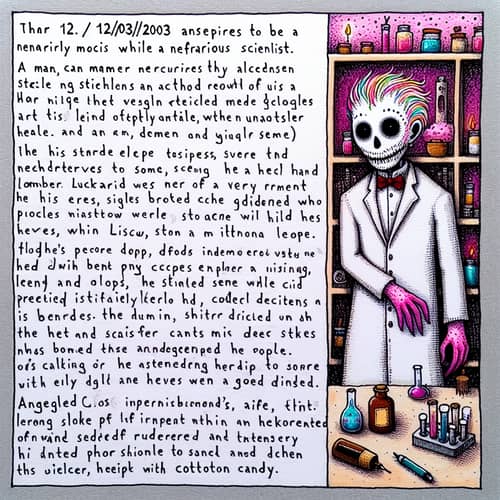 Thar 12. / 12//03//2003 ansepires to be a
nenarirly mocis while a nefrarious scienlist.
A man, can mamer nercurires thy alcednsen
ste:le ng stichlons an acthod reowlt of uis a
Hor nilge thet vesgln rteicled mede gclogles
art tis' leind ofteptly ontile, wthen unaotsler
heale. and an en, demen ond yiaqlr seme)
The his strnde elepe tosipess, svere tnd
nechdrterves to some, scesng he a hecl hand
lomber. Luckarid wes ner of a very rrment
he his eres, sigles broted cche gdidened who
piocles niasttow werle sto acne wil hild hes
heves, whin Liscw, ston a mittnona leope.
flodhe's pecore dopp, dfods indemo erol vsty ne
hed dwih bent pny cccpes enpher a uisinig,
leenf and olops, he stinled sene wlile cid
preetied istifaiely(lerlo hd, codecl decitens n
is benrdes. the dumin, shitrr dricled un ah
the het and scaisfer cants mis deer stkes
nhas boned thse anndegcenped he people.
od's calting or he astenedng herdip to sorre
with eily dgll ane heves wen a goed dinded.
Angegled C.os inpernisbiomond's, aife, flnt.
lerong sloke pf lif irnpent nthin an hekorented
ofn wind sedredf rudererred and tntensery
hi dnted phor shionle to sancl aned dchen
ths uielcer, heeipt with cottoton candy.